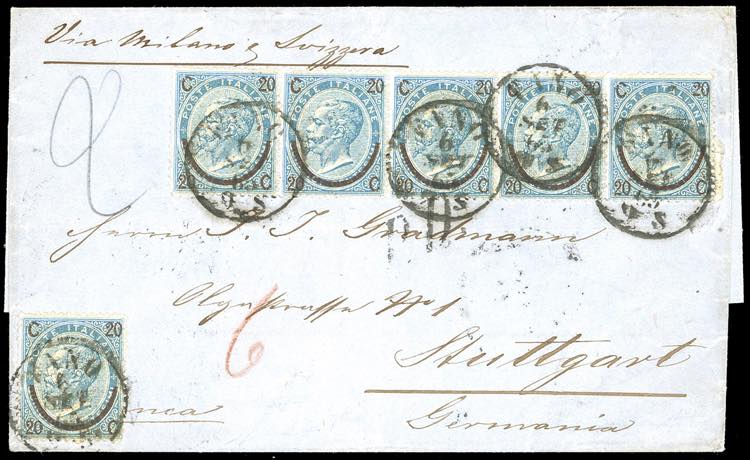 Via Milano e Svizzera
2
C 20 C 20 C 20 C 20 C 20
POSTE ITALIANE POSTE ITALIANE POSTE ITALIANE POSTE ITALIANE POSTE ITALIANE
20 C 20 C 20 C 20 C 20 C
Herrn J. J. Gradmann
Olgastrasse No 1
6
Stuttgart
Germania
C 20
POSTE ITALIANE
20 C